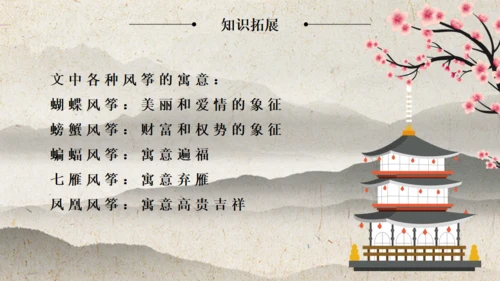 知识拓展
文中各种风筝的寓意：
蝴蝶风筝：美丽和爱情的象征
螃蟹风筝：财富和权势的象征
蝙蝠风筝：寓意遍福
七雁风筝：寓意弃雁
凤凰风筝：寓意高贵吉祥